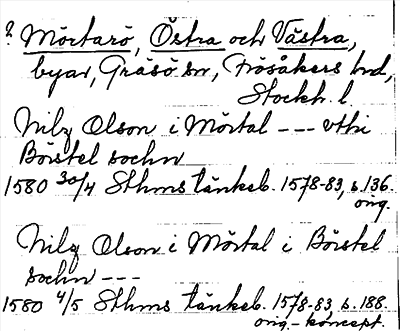 ? Mörtarö, Östra och Västra,
byar, Gräsö sn, Frösåkers hd,
Stockh. l.
Nilz Olson i Mörtal --- vthi
Börstel sochn
1580 30/4 Sthms tänkeb. 1578-83, s. 136.
orig.
Nilz Olson i Mörtal i Börstel
sochn ---
1580 4/5 Sthms tänkeb. 1578-83 s. 188.
orig.-koncept.